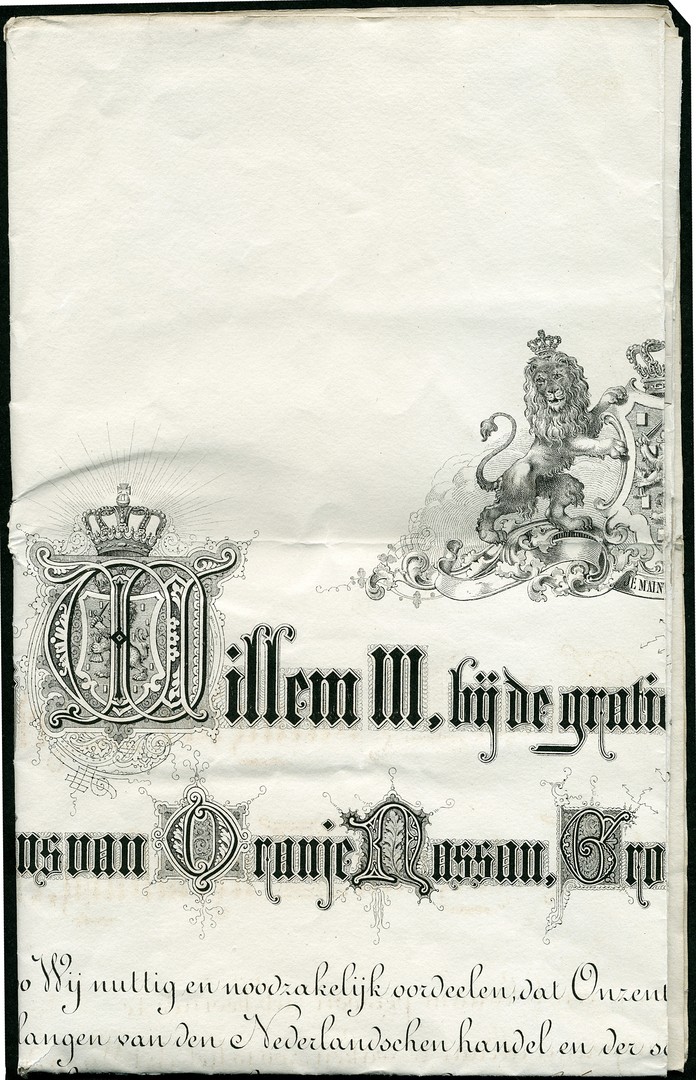 JE MAIN
Willem III, bij de gratie
ns van Oranje Nassau, Gro
o Wij nuttig en noodzakelijk oordeelen, dat Onzent
langen van den Nederlandschen handel en der sc